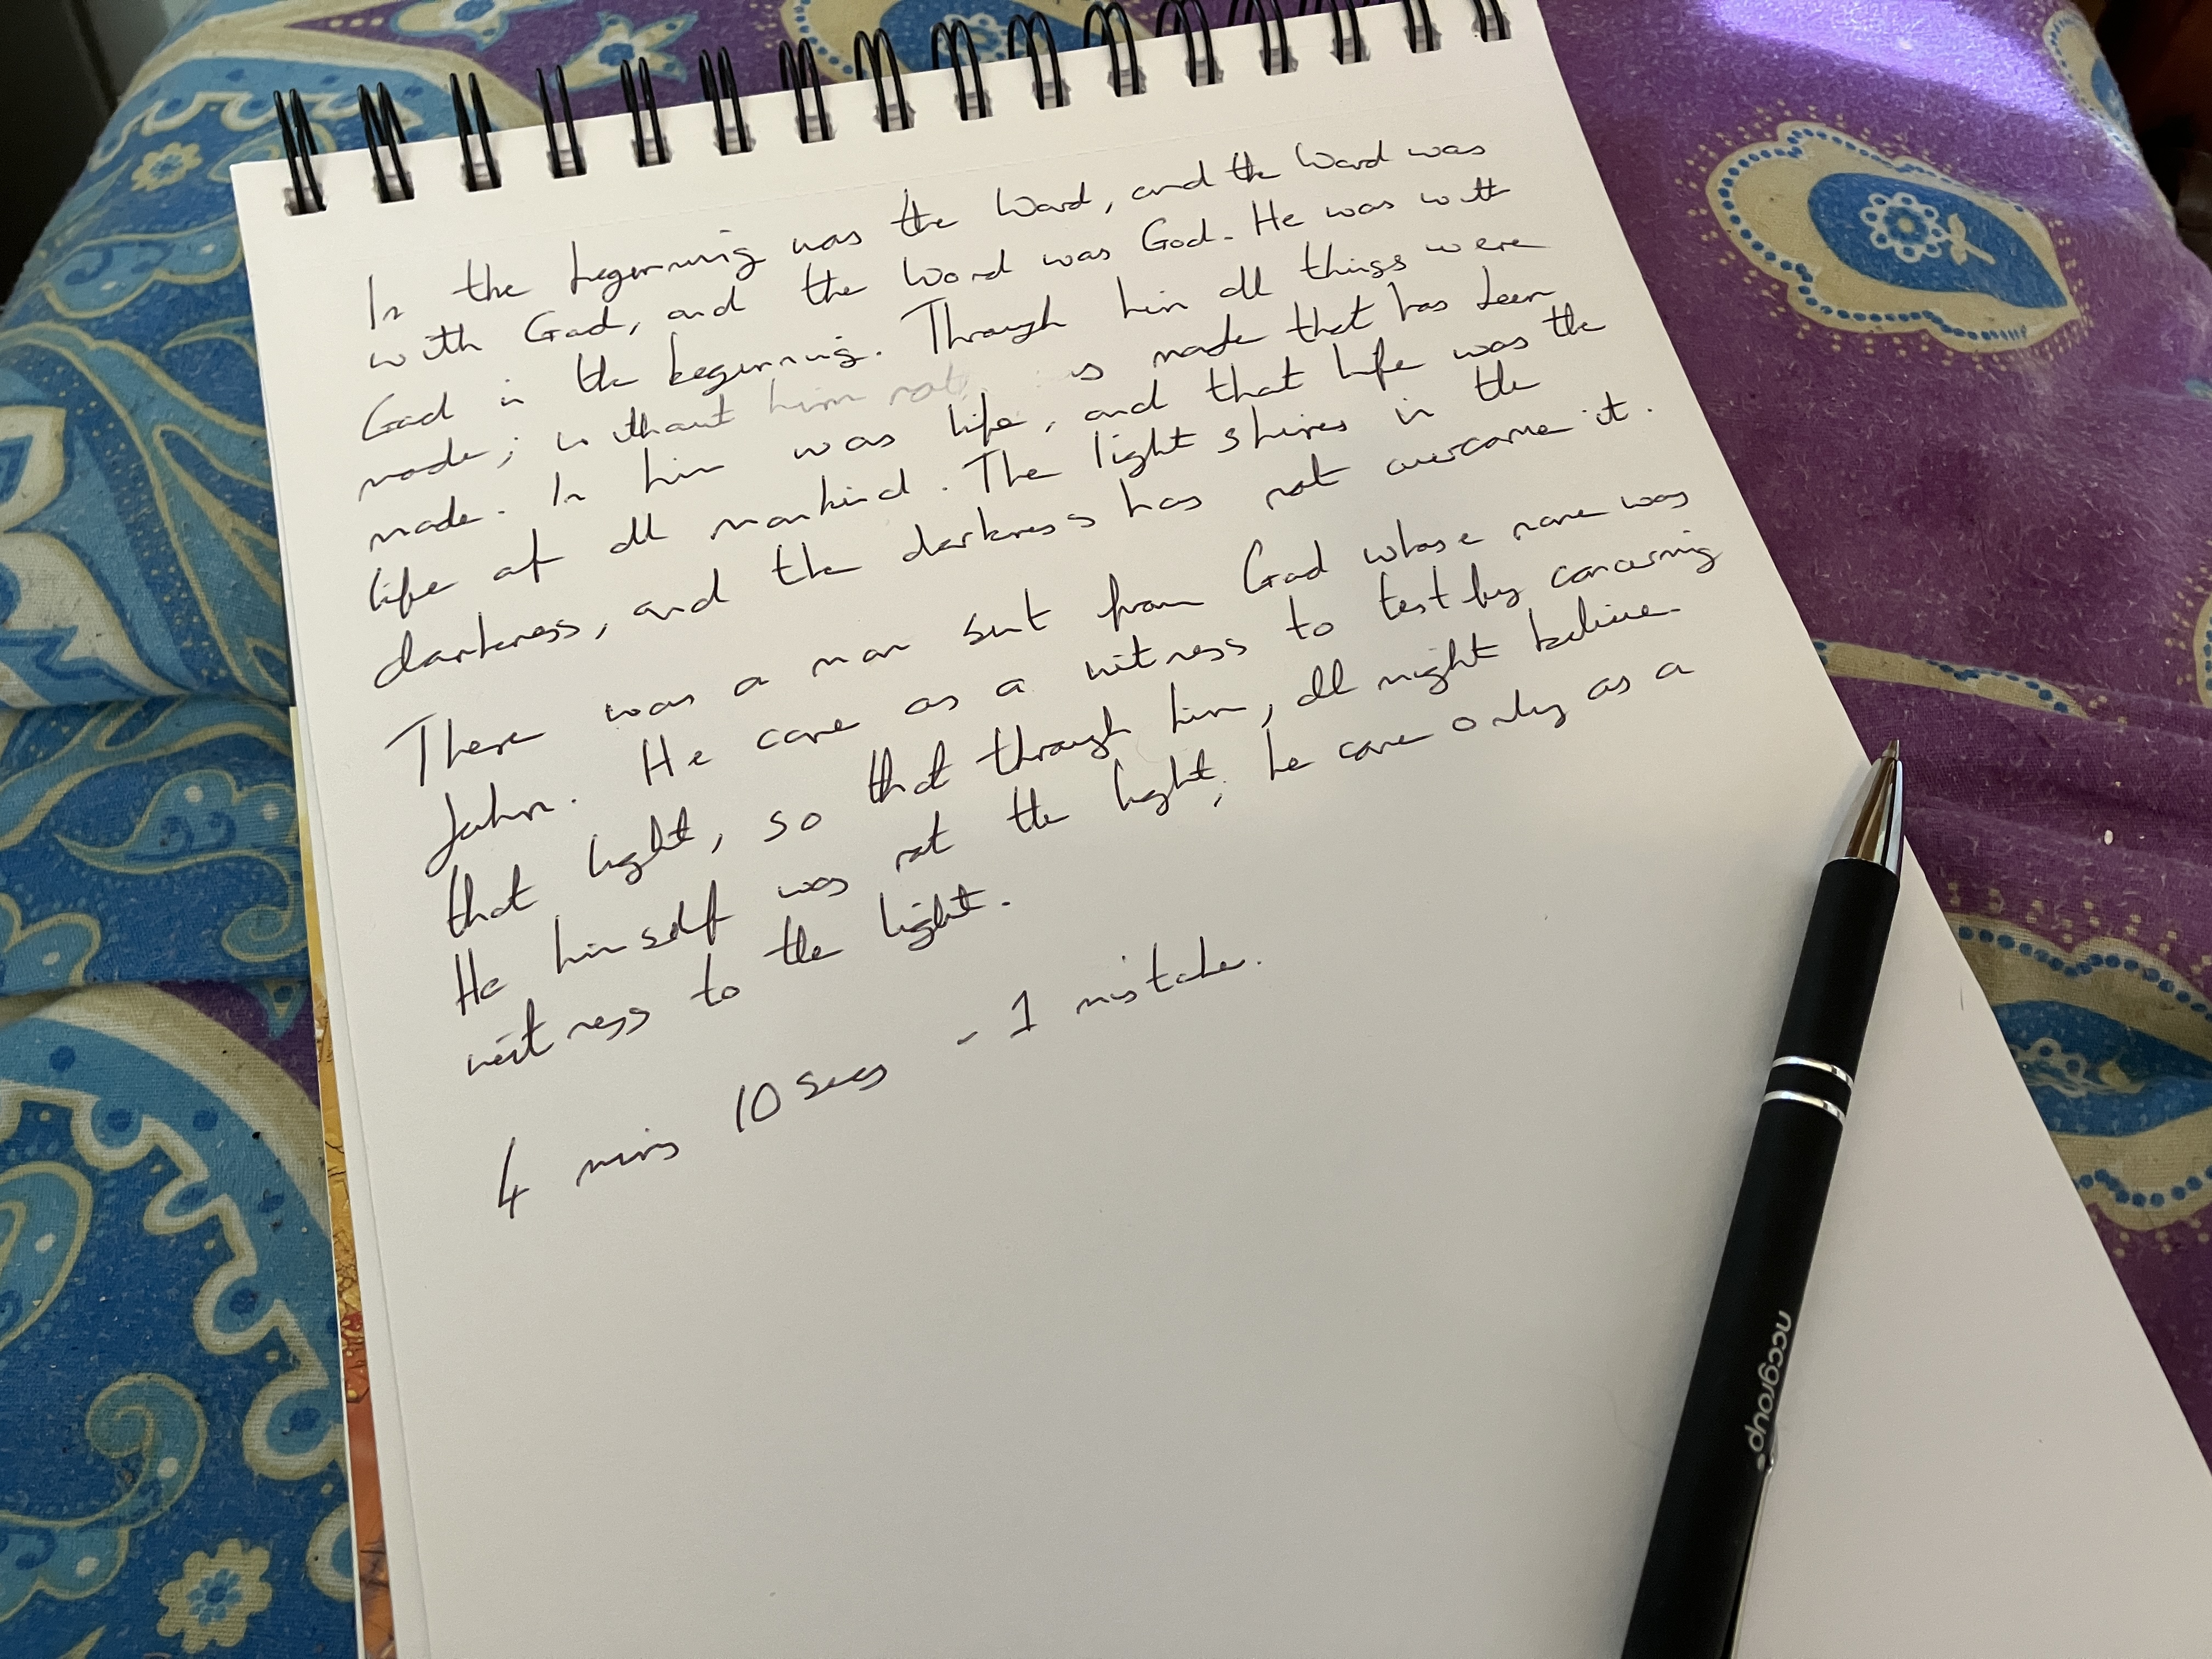 In the beginning was the Word, and the Word was
with God, and the Word was God. He was with
God in the beginning. Through him all things were
made; without him not made that has been
made. In him was life, and that life was the
life of all mankind. The light shines in the
darkness, and the darkness has not overcome it.
There was a man sent from God whose name was
John. He came as a witness to testify concerning
that light, so that through him, all might believe.
He himself was not the light; he came only as a
witness to the light.
4 mins 10 secs - 1 mistake.
nccgroup